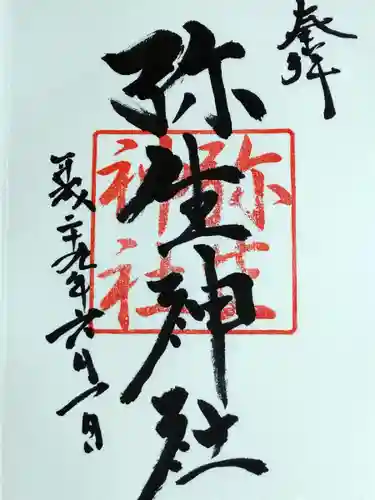 奉拝
弥生神社
弥生神社
平成二十九年六月一日